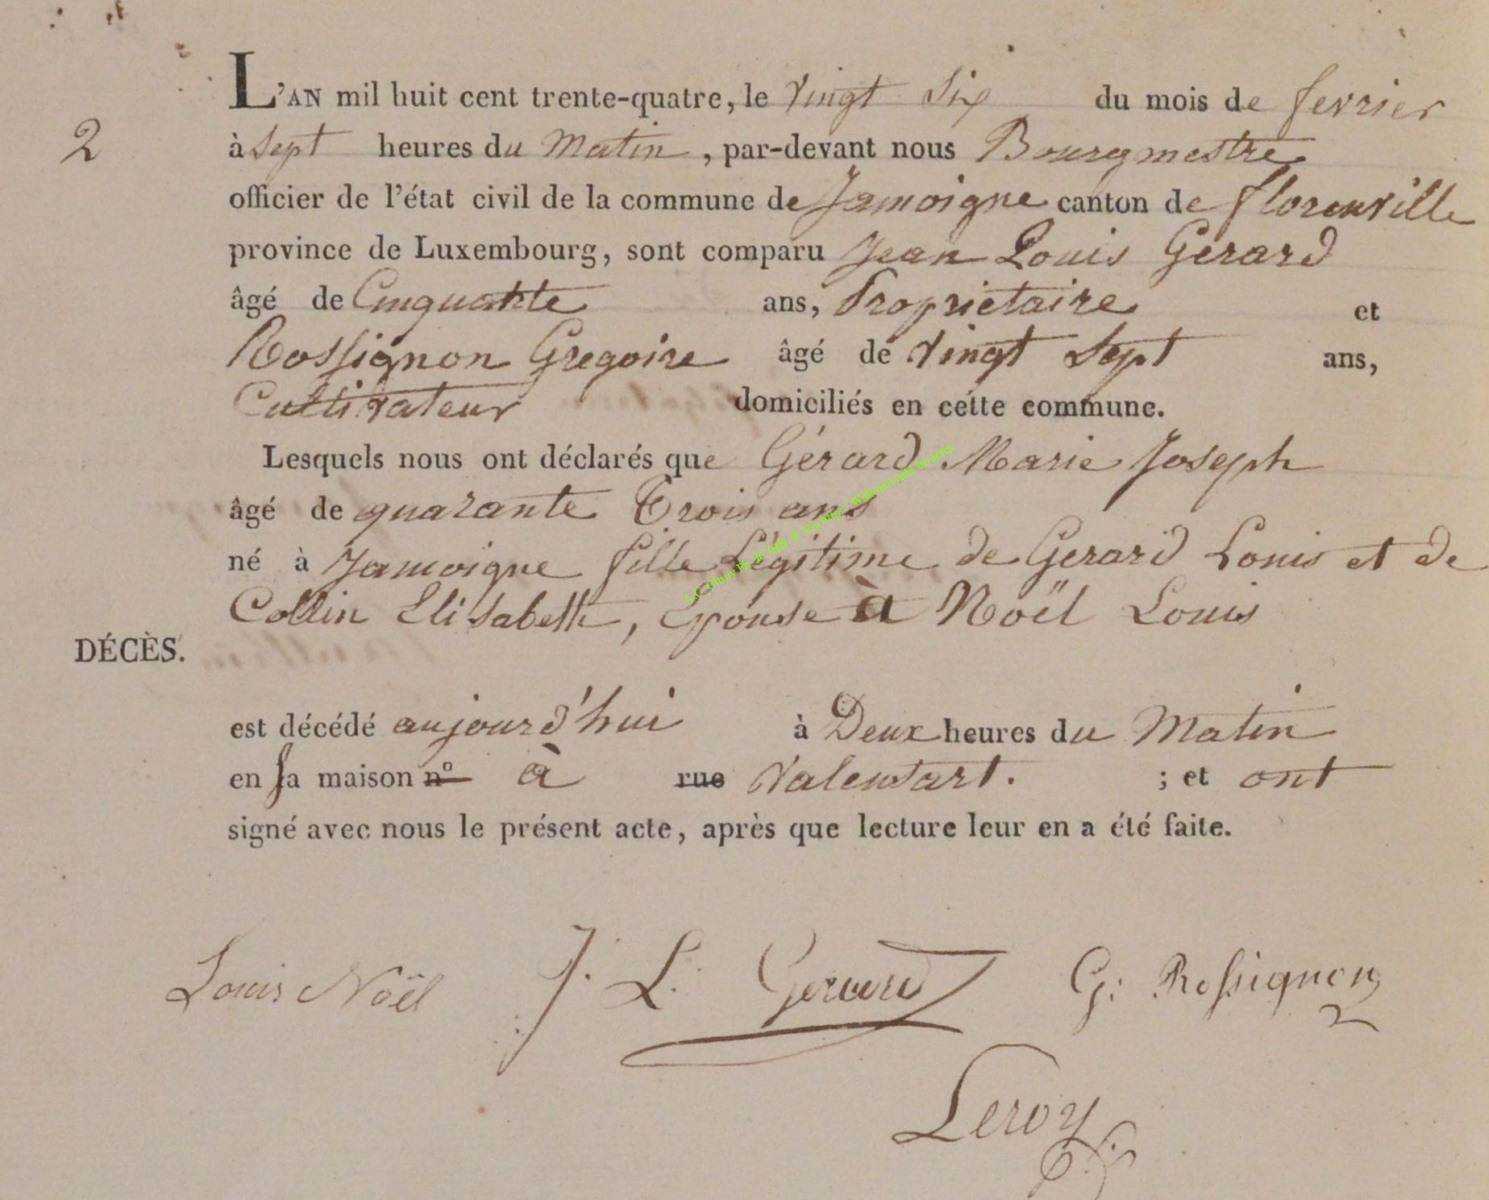 L'AN mil huit cent trente-quatre, le vingt six du mois de fevrier
2
à sept heures du Matin, par-devant nous Bourgmestre
officier de l'état civil de la commune de Jamoigne canton de florenville
province de Luxembourg, sont comparu Jean Louis Gérard
âgé de Cinquante ans, Propriétaire et
Rossignon Gregoire âgé de vingt Sept ans,
Cultivateur domiciliés en cette commune.
Lesquels nous ont déclarés que Gérard Marie Joseph
âgé de quarante Trois ans
né à Jamoigne fille Légitime de Gerard Louis et de
Collin Elisabeth, Epouse à Noël Louis
DÉCÈS.
est décédé aujourd'hui à Deux heures du Matin
en sa maison n° à rue Valensart. ; et ont
signé avec nous le présent acte, après que lecture leur en a été faite.
Louis Noël J. L. Gerard G: Rossignon
Leroy